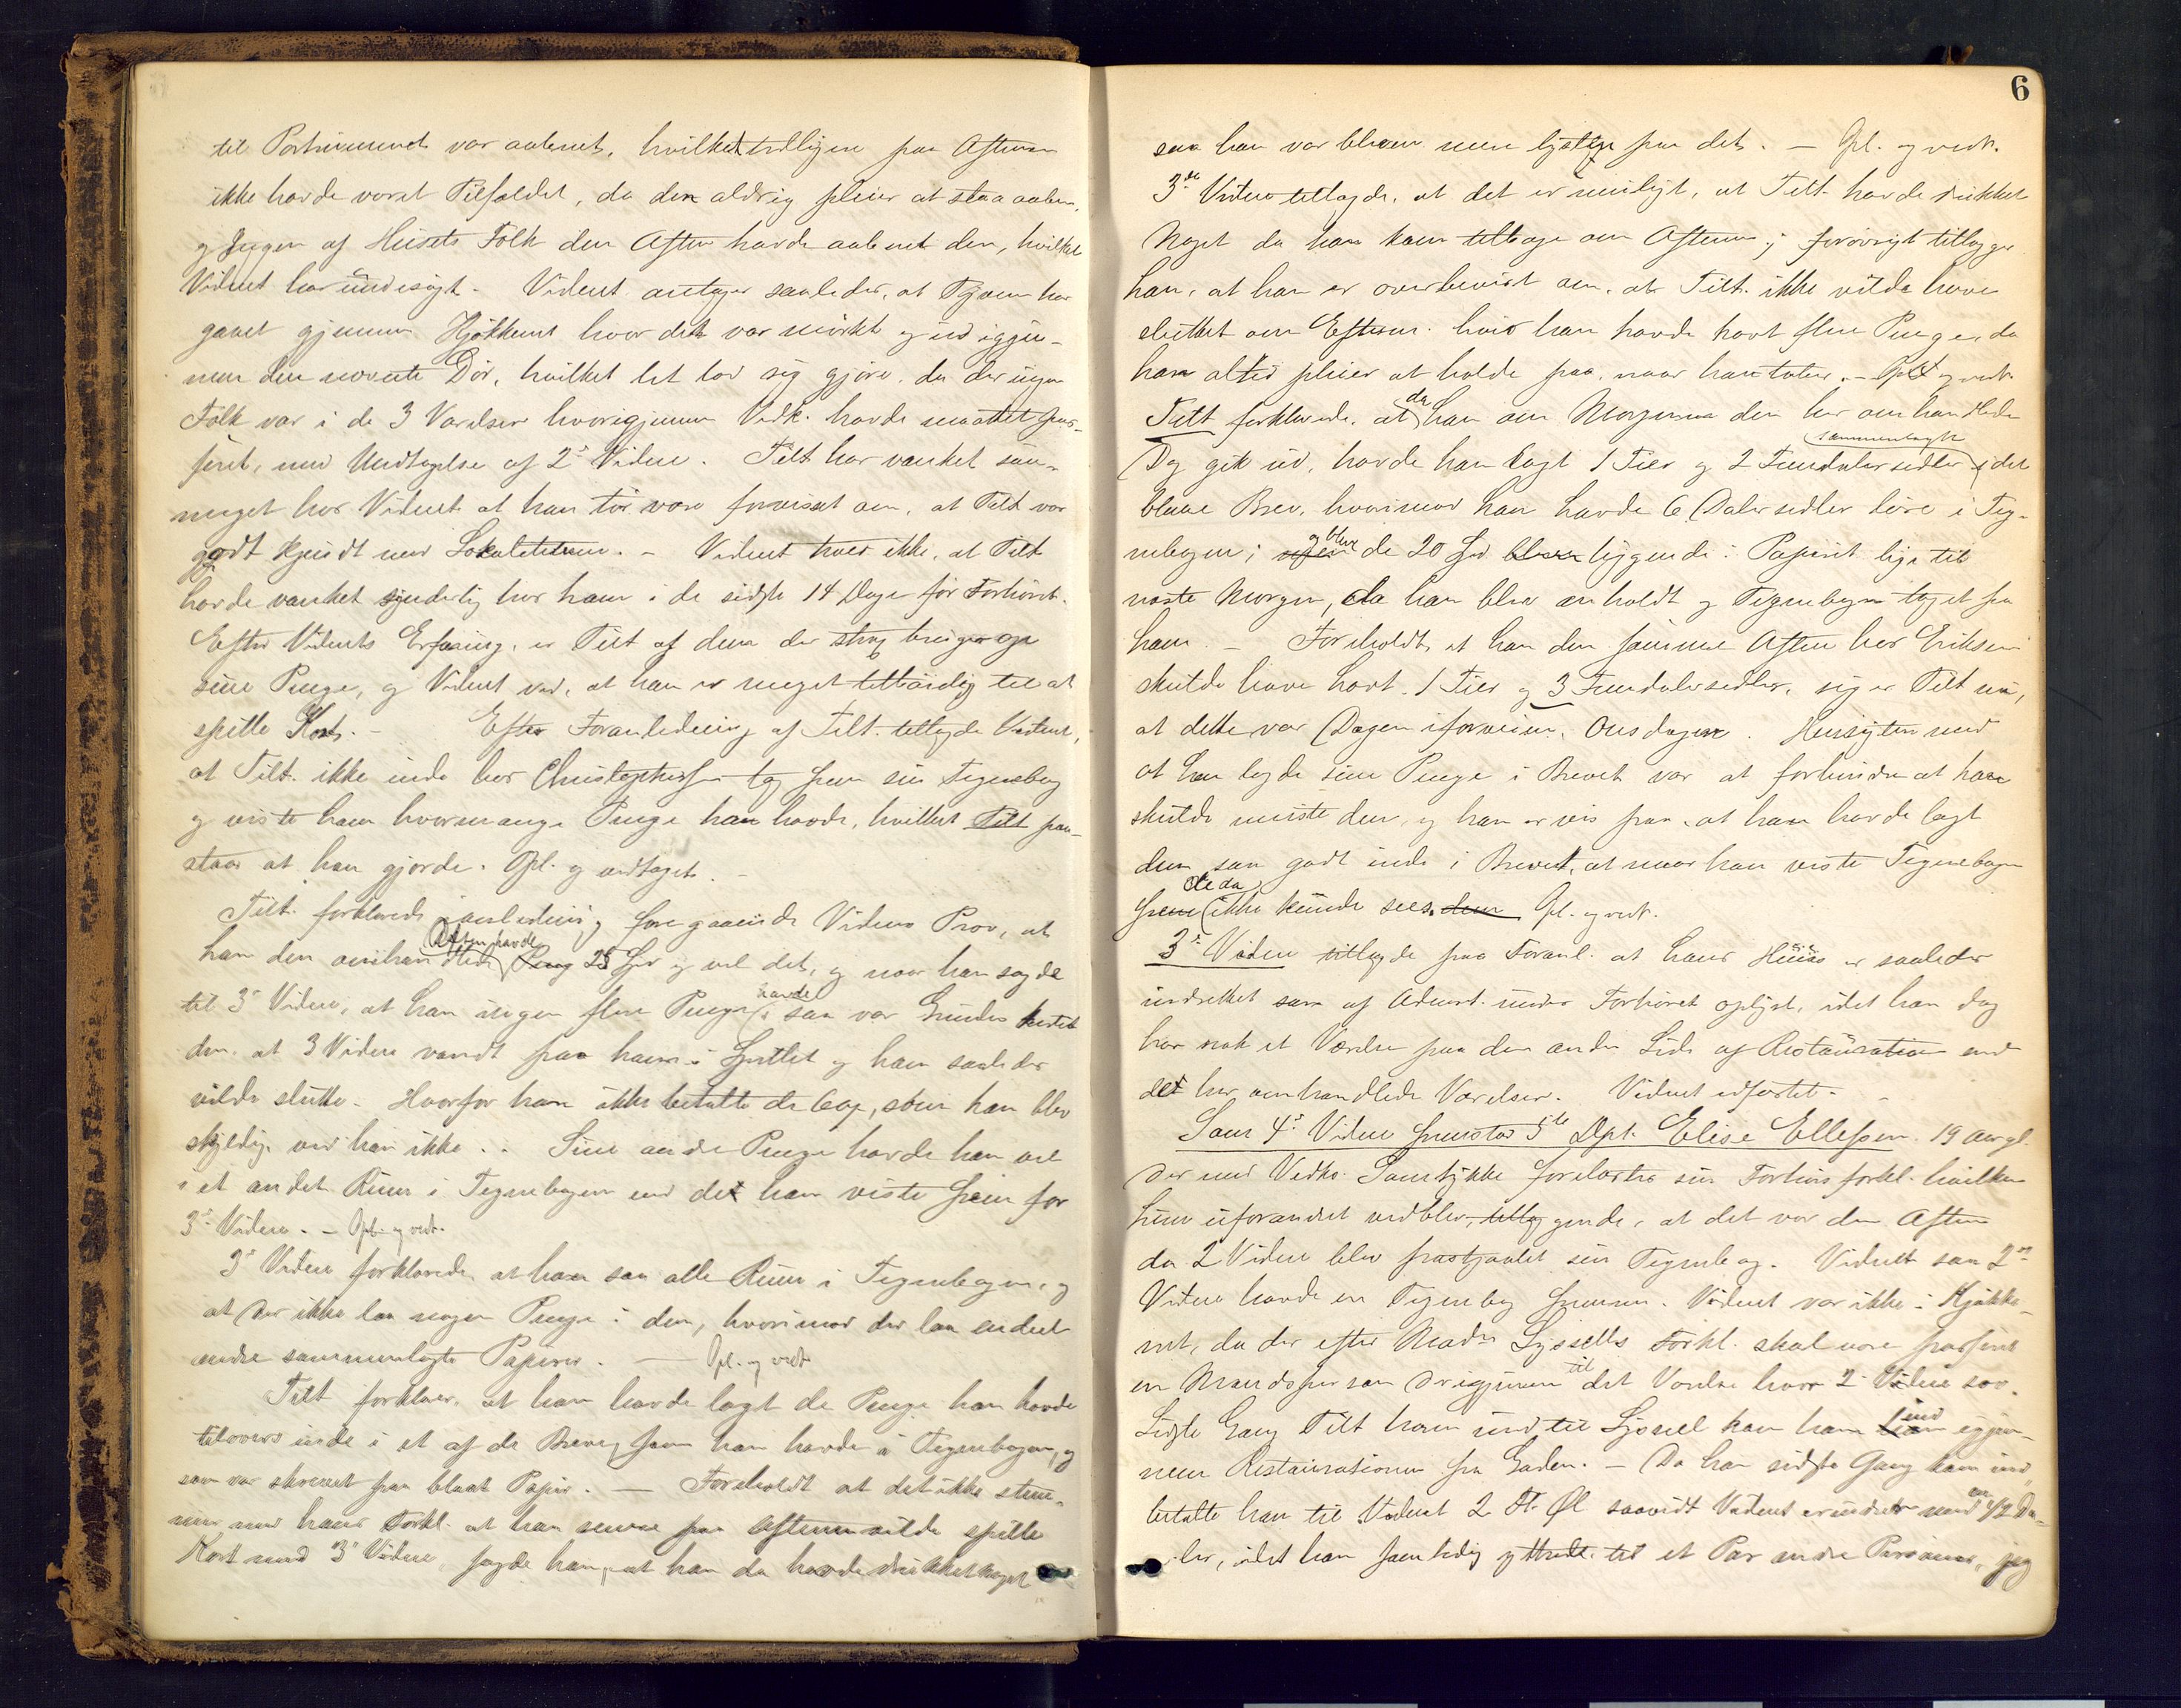 til Portrummet var aabent, hvilket tidligere paa Aftenen
ikke havde været Tilfældet, da den aldrig pleier at staa aaben,
og Ingen af Husets Folk den Aften havde aabnet den, hvilket
Vidnet har undersøgt. Vidnet antager saaledes, at Tyven har
gaaet gjennem Kjøkkenet hvor det var mørkt og ud igjen-
nem den nævnte Dør, hvilket let lod sig gjøre, da der ingen
Folk var i de 3 Værelser hvorigjennem Vedk. havde maattet pas-
seret, med Undtagelse af 2det Vidne. Tilt. har vanket saa-
meget hos Vidnet at han tør være forvisset om, at Tilt. var
godt kjendt med Lokaliteterne. - Vidnet troer ikke, at Tilt.
havde vanket synderlig hos ham i de sidste 14 Dage før Forhøret.
Efter Vidnets Erfaring, er Tilt. af dem der strax bruger op
sine Penge, og Vidnet ved, at han er meget tilbøielig til at
spille Kort. - Efter Foranledning af Tilt. tillagde Vidnet,
at Tilt. ikke inde hos Christophersen tog frem sin Tegnebog
og viste ham hvormange Penge han havde, hvilket Tilt. paa-
staar at han gjorde. Opl. og vedtaget. -
Tilt. forklarede i anledning foregaaende Vidnes Prov, at
han den omhandlede Aften havde 25 Spd og vel det, og naar han sagde
til 3de Vidne, at han ingen flere Penge havde, saa var Grunden hertil
den, at 3 Vidne vandt paa ham i Spillet og han saaledes
vilde slutte. Hvorfor han ikke betalte de 60 ß, som han blev
skyldig, ved han ikke. - Sine andre Penge havde han vel
i et andet Rum i Tegnebogen end det han viste frem for
3de Vidne. - Opl. og vedt.
3de Vidne forklarede, at han saa alle Rum i Tegnebogen, og
at der ikke laa nogen Penge i den, hvorimod der laa endeel
andre sammenlagte Papirer. - Opl. og vedt.
Tilt. forklarer, at han havde lagt de Penge han havde
tilovers inde i et af de Breve, som han havde i Tegnebogen, og
som var skrevet paa blaat Papir. - Foreholdt at det ikke stem-
mer med hans Forkl. at han senere paa Aftenen vilde spille
Kort med 3de Vidne, sagde han, at han da havde drukket noget
6
saa han var bleven mere lysten paa det. - Opl. og vedt.
3de Vidne tillagde, at det er muligt, at Tilt. havde drukket
Noget da han kom tilbage om Aftenen; forøvrigt tillægger
han, at han er overbevist om, at Tilt. ikke vilde have
sluttet om Efterm. hvis han havde havt flere Penge, da
han altid pleier at holde paa, naar han taber. - Opl. og vedt.
Tilt. forklarede, at da han om Morgenen den her omhandlede
Dag gik ud, havde han lagt 1 Tier og 2 Femdalersedler sammenlagte i det
blaae Brev, hvorimod han havde 6 Dalersedler løse i Teg-
nebogen; og blev de 20 Spd liggende i Papiret lige til
næste Morgen, da han blev anholdt og Tegnebogen taget fra
ham. - Foreholdt, at han den samme Aften hos Eriksen
skulde have havt 1 Tier og 3 Femdalersedler, siger Tilt. nu,
at dette var Dagen iforveien, Onsdagen. Hensigten med
at han lagde sine Penge i Brevet var at forhindre at han
skulde miste dem, og han er vis paa, at han havde lagt
dem saa godt inde i Brevet, at naar han viste Tegnebogen
frem de da ikke kunde sees. Opl. og vedt.
3de Vidne tillagde paa Foranl. at hans Huus er saaledes
indrettet som af Adm. under Forhøret oplyst, idet han dog
har nok et Værelse paa den anden Side af Restaurationen end
det her omhandlede Værelser. Vidnet aftraadt. -
Som 4de Vidne fremstod 5te Dpt. Elise Ellefsen, 19 Aar gl.
der med Vedks. Samtykke forelæstes sin Forhørsforkl. hvilken
hun uforandret vedblev, tillæggende, at det var den Aften
da 2 Vidne blev frastjaalet sin Tegnebog. Vidnet saa 2det
Vidne havde en Tegnebog fremme. Vidnet var ikke i Kjøkke-
net, da der efter Mads Lysells Forkl. skal være passeret
en Mandsperson derigjennem til det Værelse hvor 2 Vidne sov.
Sidste Gang Tilt. kom ind til Lyssel kom han ind igjen-
nem Restaurationen fra Gaden. - Da han sidste Gang kom ind,
betalte han til Vidnet 2 Fl. Øl saavidt Vidnet erindrer med en 1/2 Da-
ler, idet han samtidig yttrede til et Par andre Personer, jeg